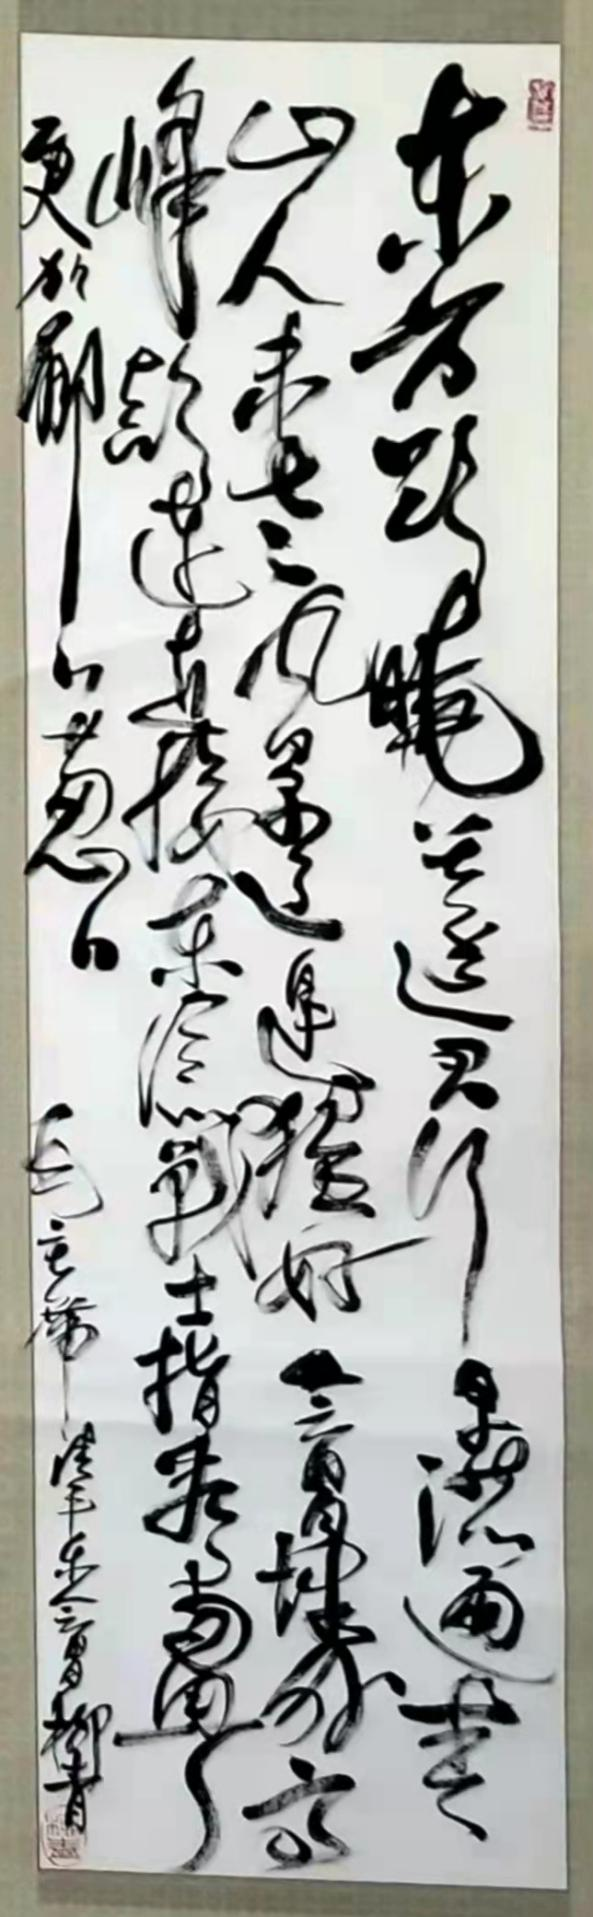 东方欲晓莫道君行早踏遍青
山人未老风景这边独好会昌城外高
峰颠连直接东溟战士指看南粤
更加郁郁葱葱
毛主席清平乐会昌柳青